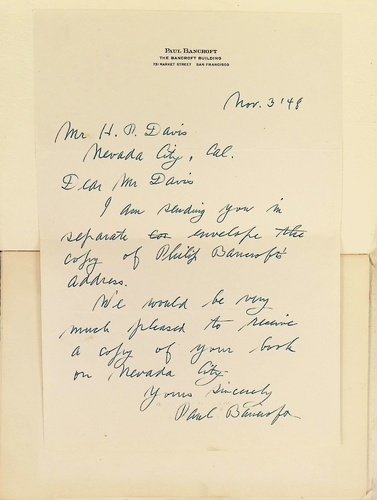 PAUL BANCROFT
THE BANCROFT BUILDING
731 MARKET STREET SAN FRANCISCO
Nov. 3 '48
Mr H. P. Davis
Nevada City, Cal.
Dear Mr Davis
I am sending you in
separate en envelope the
copy of Philip Bancroft's
address.
We would be very
much pleased to receive
a copy of your book
on Nevada City.
Yours Sincerely
Paul Bancroft